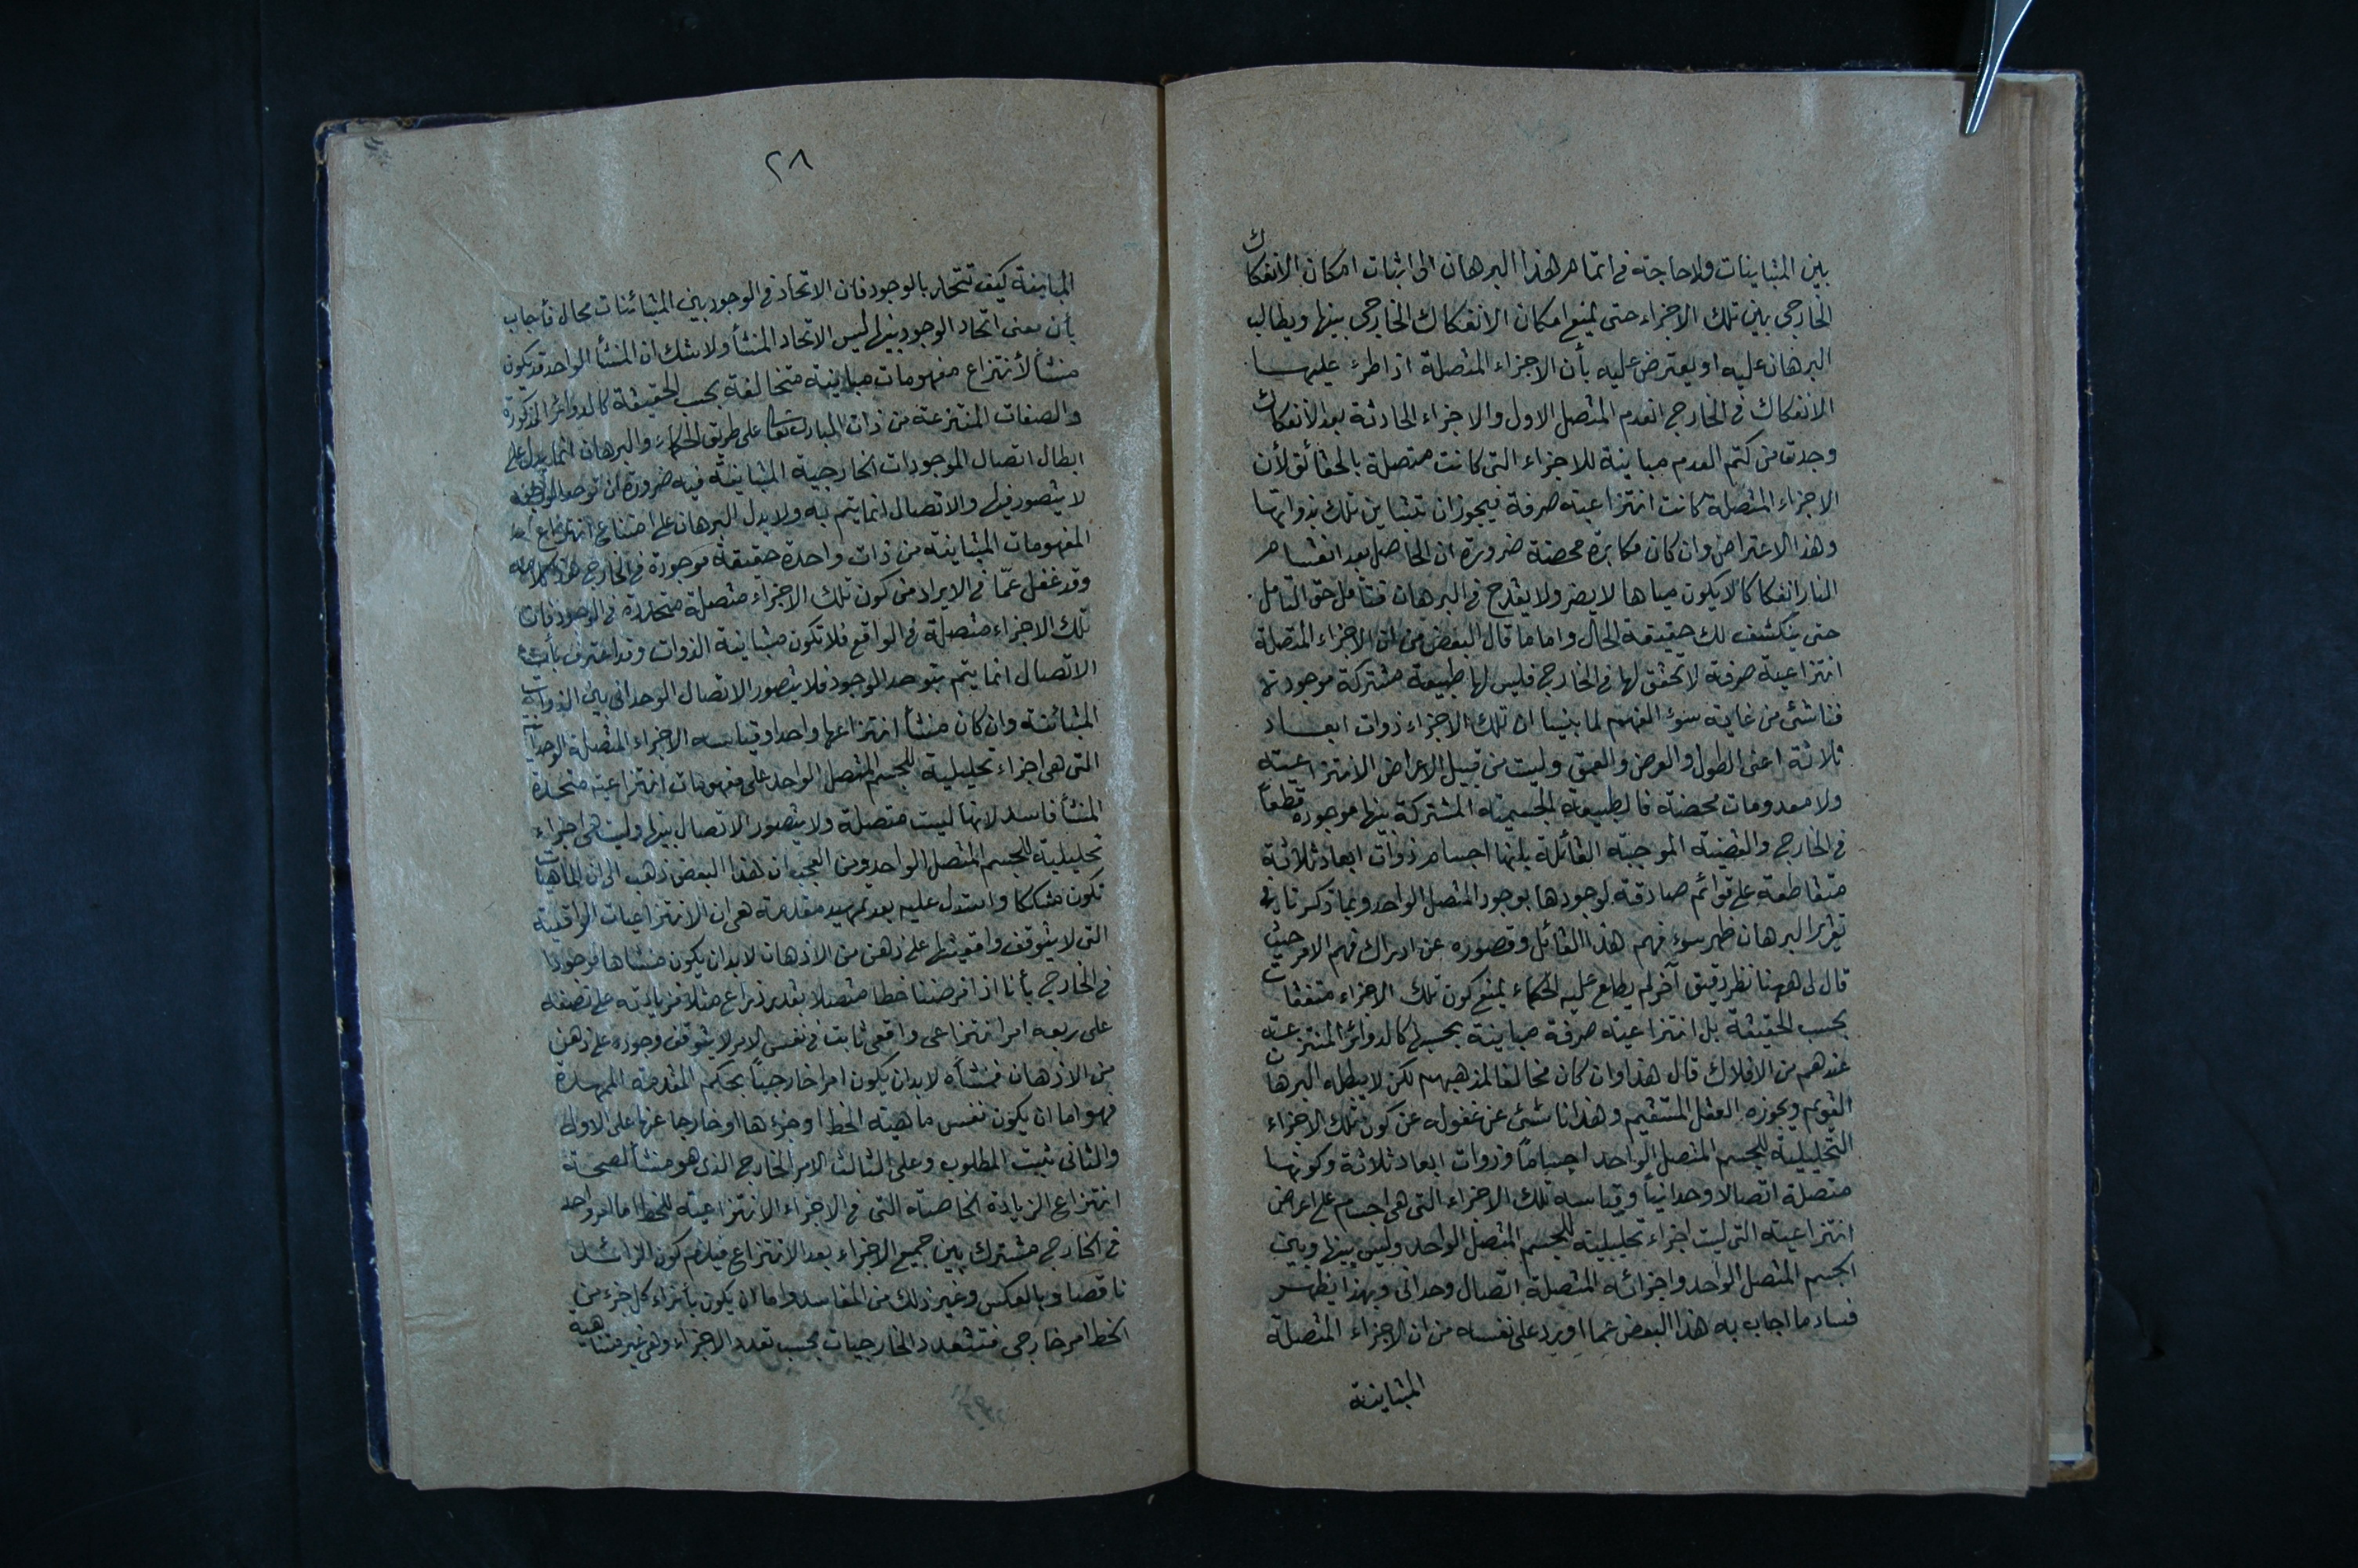 بين المتباينات ولا حاجة فى اتمام هذا البرهان الى اثبات امكان الانفكاك
الخارجى بين تلك الاجزاء حتى يمنع امكان الانفكاك الخارجى بينها ويطالب
البرهان عليه او يعترض عليه بأن الاجزاء المتصلة اذا طرء عليهـــا
الانفكاك فى الخارج انعدم المتصل الاول والاجزاء الحادثة بعد الانفكاك
وجدت من كتم العدم مباينة للاجزاء التى كانت متصلة بالحقائق لأن
الاجزاء المتصلة كانت انتزاعية صرفة فيجوز ان تتباين تلك بذواتها
وهذا الاعتراض وان كان مكابرة محضة ضرورة ان الحاصل بعد انقسام
النار انفكاكا لا يكون مياها لا يضر ولا يقدح فى البرهان فتأمل حق التامل
حتى ينكشف لك حقيقة الحال واما ما قال البعض من ان الاجزاء المتصلة
انتزاعية صرفة لا تحقق لها فى الخارج فليس لها طبيعة مشتركة موجودة
فناشئ من غاية سوء الفهم لما بينا ان تلك الاجزاء ذوات ابعـــاد
ثلاثة اعنى الطول والعرض والعمق وليست من قبيل الاعراض الانتزاعية
ولا معدومات محضة فالطبيعة الجسمية المشتركة بينها موجودة قطعاً
فى الخارج والقضية الموجبة القائلة بانها اجسام ذوات ابعاد ثلاثة
متقاطعة على قوائم صادقة لوجودها بوجود المتصل الواحد وبما ذكرنا فى
تقرير البرهان ظهر سوء فهم هذا القائل وقصوره عن ادراك فهم الامر حيث
قال لى ههنا نظر دقيق آخر لم يطلع عليه الحكماء يمنع كون تلك الاجزاء متفقات
بحسب الحقيقة بل انتزاعية صرفة مباينة بحسبها كالدوائر المنتزعة
عندهم من الافلاك قال هذا وان كان مخالفا لمذهبهم لكن لا يبطله البرهان
القويم ويجوزه العقل المستقيم وهذا ناشئ عن غفوله عن كون تلك الاجزاء
التحليلية للجسم المتصل الواحد اجساماً وذوات ابعاد ثلاثة وكونها
متصلة اتصالا وحدانياً وقياسه تلك الاجزاء التى هى اجسام على اعراض
انتزاعية التى ليست اجزاء تحليلية للجسم المتصل الواحد وليس بينها وبين
الجسم المتصل الواحد واجزائه المتصلة اتصال وحدانى وبهذا يظهـــر
فساد ما اجاب به هذا البعض عما اورد على نفسه من ان الاجزاء المتصلة
المتباينة
٢٨
المباينة كيف تتحد بالوجود فان الاتحاد فى الوجود بين المتبائنات محال فأجاب
بأن معنى اتحاد الوجود بينها ليس الاتحاد المنشأ ولا شك ان المنشأ الواحد قد يكون
منشأ لأنتزاع مفهومات مباينة متخالفة بحسب الحقيقة كالدوائر المذكورة
والصفات المنتزعة من ذات المبارئ تعالى على طريق الحكماء والبرهان انما يدل على
ابطال اتصال الموجودات الخارجية المتباينة فيه ضرورة ان توحد الوجود
لا يتصور فيها والاتصال انما يتم به ولا يدل البرهان على امتناع انتزاع
المفهومات المتباينة من ذات واحدة حقيقة موجودة فى الخارج هذا كلامه
وقد غفل عمّا فى الايراد من كون تلك الاجزاء متصلة متحدة فى الوجود فان
تلك الاجزاء متصلة فى الواقع فلا تكون متباينة الذوات وقد اعترف بأن
الاتصال انما يتم بتوحد الوجود فلا يتصور الاتصال الوحدانى بين الذوات
المتبائنة وان كان منشأ انتزاعها واحدا وقياسه الاجزاء المتصلة الوحدانية
التى هى اجزاء تحليلية للجسم المتصل الواحد على مفهومات انتزاعية متحدة
المنشأ فاسد لانها ليست متصلة ولا يتصور الاتصال بينها وليست هى اجزاء
تحليلية للجسم المتصل الواحد ومن العجب ان هذا البعض ذهب الى ان الماهيات
تكون مشككا واستدل عليه بعد تمهيد مقدمة هى ان الانتزاعيات الواقعية
التى لا يتوقف واقعيتها على ذهن من الاذهان لابد ان يكون منشاها موجودا
فى الخارج بأنا اذا فرضنا خطا متصلا بقدر ذراع مثلا فزيادته على نصفه
على ربعه امر انتزاعى واقعى ثابت فى نفس الامر لا يتوقف وجوده على ذهن
من الاذهان فمنشأه لابد ان يكون امرا خارجياً بحكم المقدمة الممهدة
فهو اما ان يكون نفس ماهية الخط او جزءها او خارجا عنها على الاول
والثانى يثبت المطلوب وعلى الثالث الامر الخارج الذى هو منشأ لصحة
انتزاع الزيادة الخاصة التى فى الاجزاء الانتزاعية للخط اما امر واحد
فى الخارج مشترك بين جميع الاجزاء بعد الانتزاع فيلزم كون الزائـــد
ناقصا وبالعكس وغير ذلك من المفاسد واما ان يكون بأزاء كل جزء من
الخط امر خارجى فتتعدد الخارجيات بحسب تعدد الاجزاء وهى غير متناهية